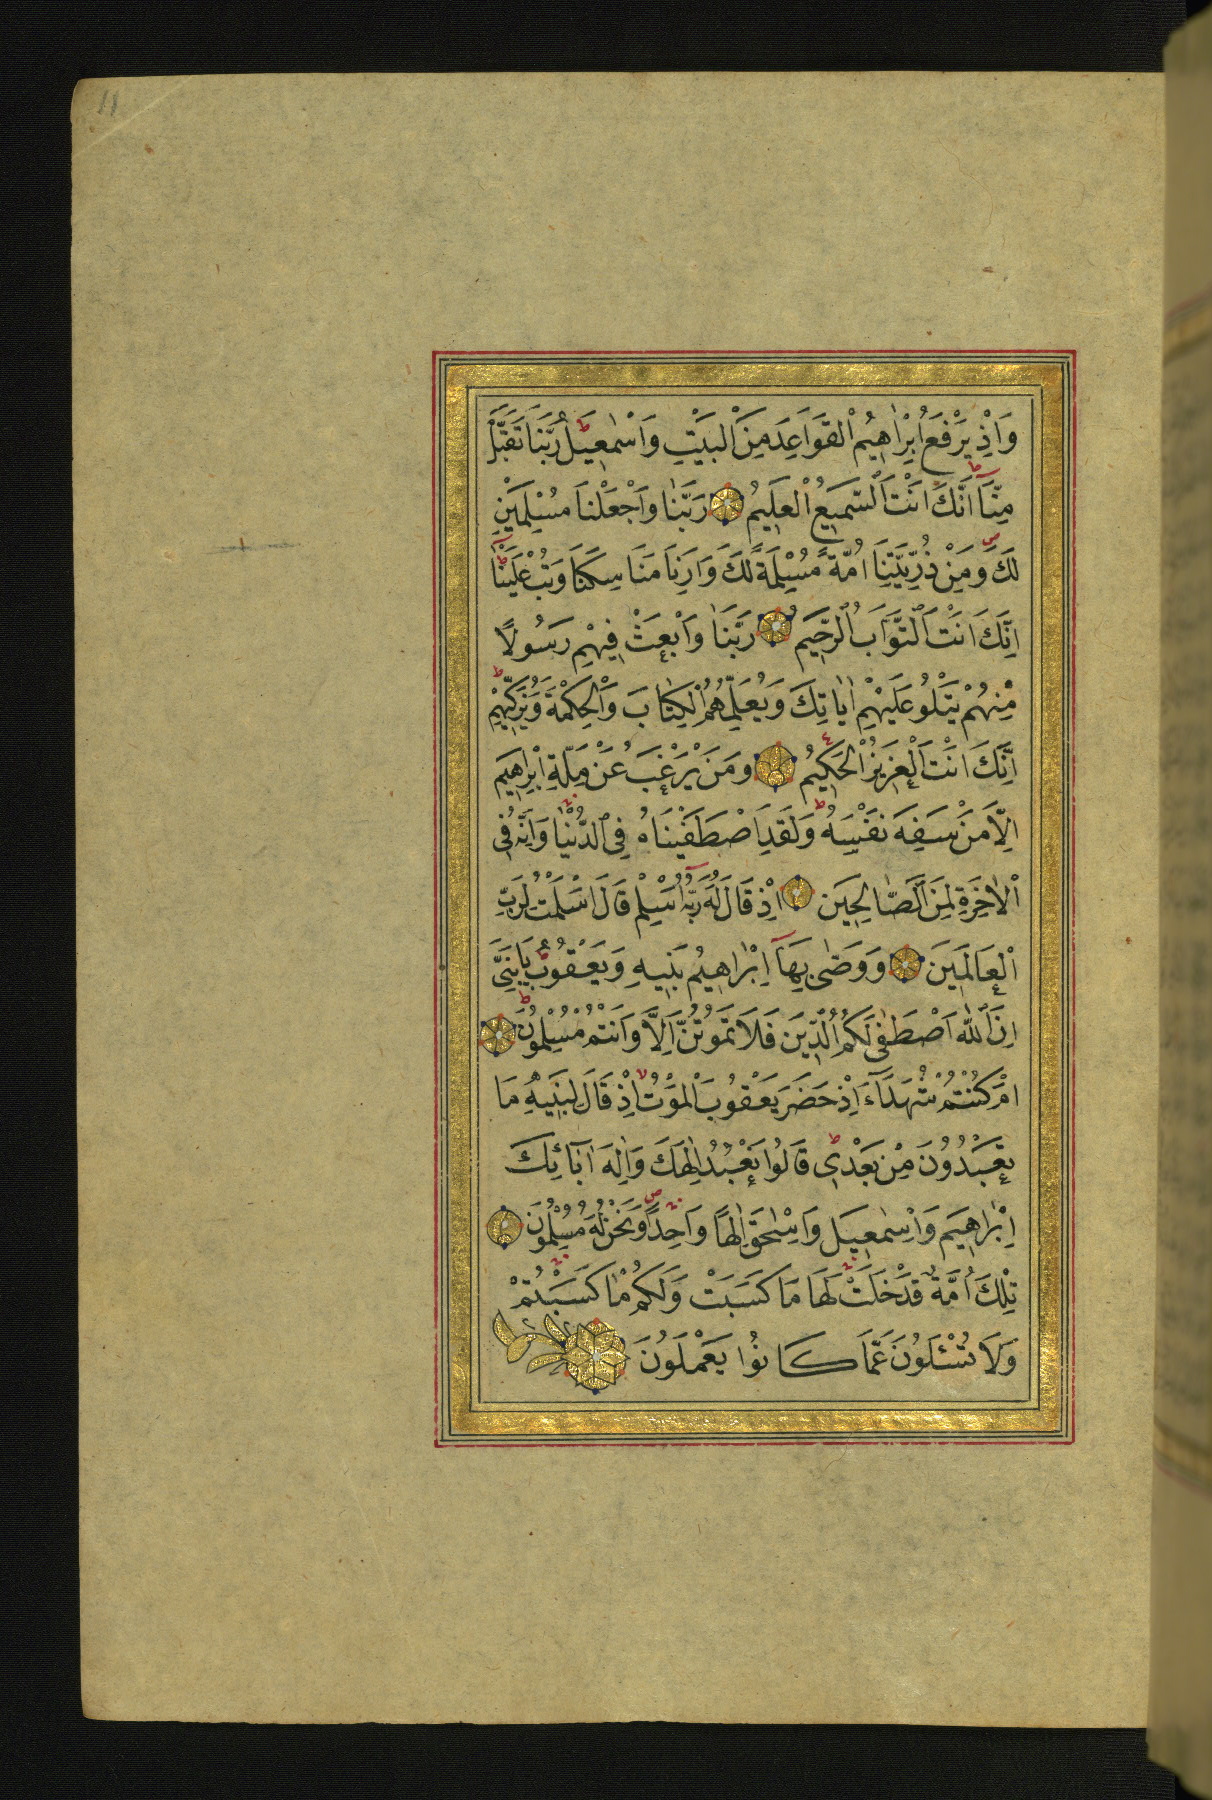 وَاِذْ يَرْفَعُ اِبْرٰاهِيمُ الْقَوَاعِدَ مِنَ الْبَيْتِ وَاِسْمٰعِيلُ رَبَّنَا تَقَبَّلْ
مِنَّا اِنَّكَ اَنْتَ السَّمِيعُ الْعَلِيمُ رَبَّنَا وَاجْعَلْنَا مُسْلِمَيْنِ
لَكَ وَمِنْ ذُرِّيَّتِنَا اُمَّةً مُسْلِمَةً لَكَ وَاَرِنَا مَنَاسِكَنَا وَتُبْ عَلَيْنَا
اِنَّكَ اَنْتَ التَّوَّابُ الرَّحِيمُ رَبَّنَا وَابْعَثْ فِيهِمْ رَسُولًا
مِنْهُمْ يَتْلُو عَلَيْهِمْ اٰيَاتِكَ وَيُعَلِّمُهُمُ الْكِتَابَ وَالْحِكْمَةَ وَيُزَكِّيهِمْ
اِنَّكَ اَنْتَ الْعَزِيزُ الْحَكِيمُ وَمَنْ يَرْغَبُ عَنْ مِلَّةِ اِبْرٰاهِيمَ
اِلَّا مَنْ سَفِهَ نَفْسَهُ وَلَقَدِ اصْطَفَيْنَاهُ فِي الدُّنْيَا وَاِنَّهُ فِي
الْاٰخِرَةِ لَمِنَ الصَّالِحِينَ اِذْ قَالَ لَهُ رَبُّهُ اَسْلِمْ قَالَ اَسْلَمْتُ لِرَبِّ
الْعَالَمِينَ وَوَصّٰى بِهَا اِبْرٰاهِيمُ بَنِيهِ وَيَعْقُوبُ يَا بَنِيَّ
اِنَّ اللّٰهَ اصْطَفٰى لَكُمُ الدِّينَ فَلَا تَمُوتُنَّ اِلَّا وَاَنْتُمْ مُسْلِمُونَ
اَمْ كُنْتُمْ شُهَدَاءَ اِذْ حَضَرَ يَعْقُوبَ الْمَوْتُ اِذْ قَالَ لِبَنِيهِ مَا
تَعْبُدُونَ مِنْ بَعْدِي قَالُوا نَعْبُدُ اِلٰهَكَ وَاِلٰهَ اٰبَائِكَ
اِبْرٰاهِيمَ وَاِسْمٰعِيلَ وَاِسْحٰقَ اِلٰهًا وَاحِدًا وَنَحْنُ لَهُ مُسْلِمُونَ
تِلْكَ اُمَّةٌ قَدْ خَلَتْ لَهَا مَا كَسَبَتْ وَلَكُمْ مَا كَسَبْتُمْ
وَلَا تُسْئَلُونَ عَمَّا كَانُوا يَعْمَلُونَ